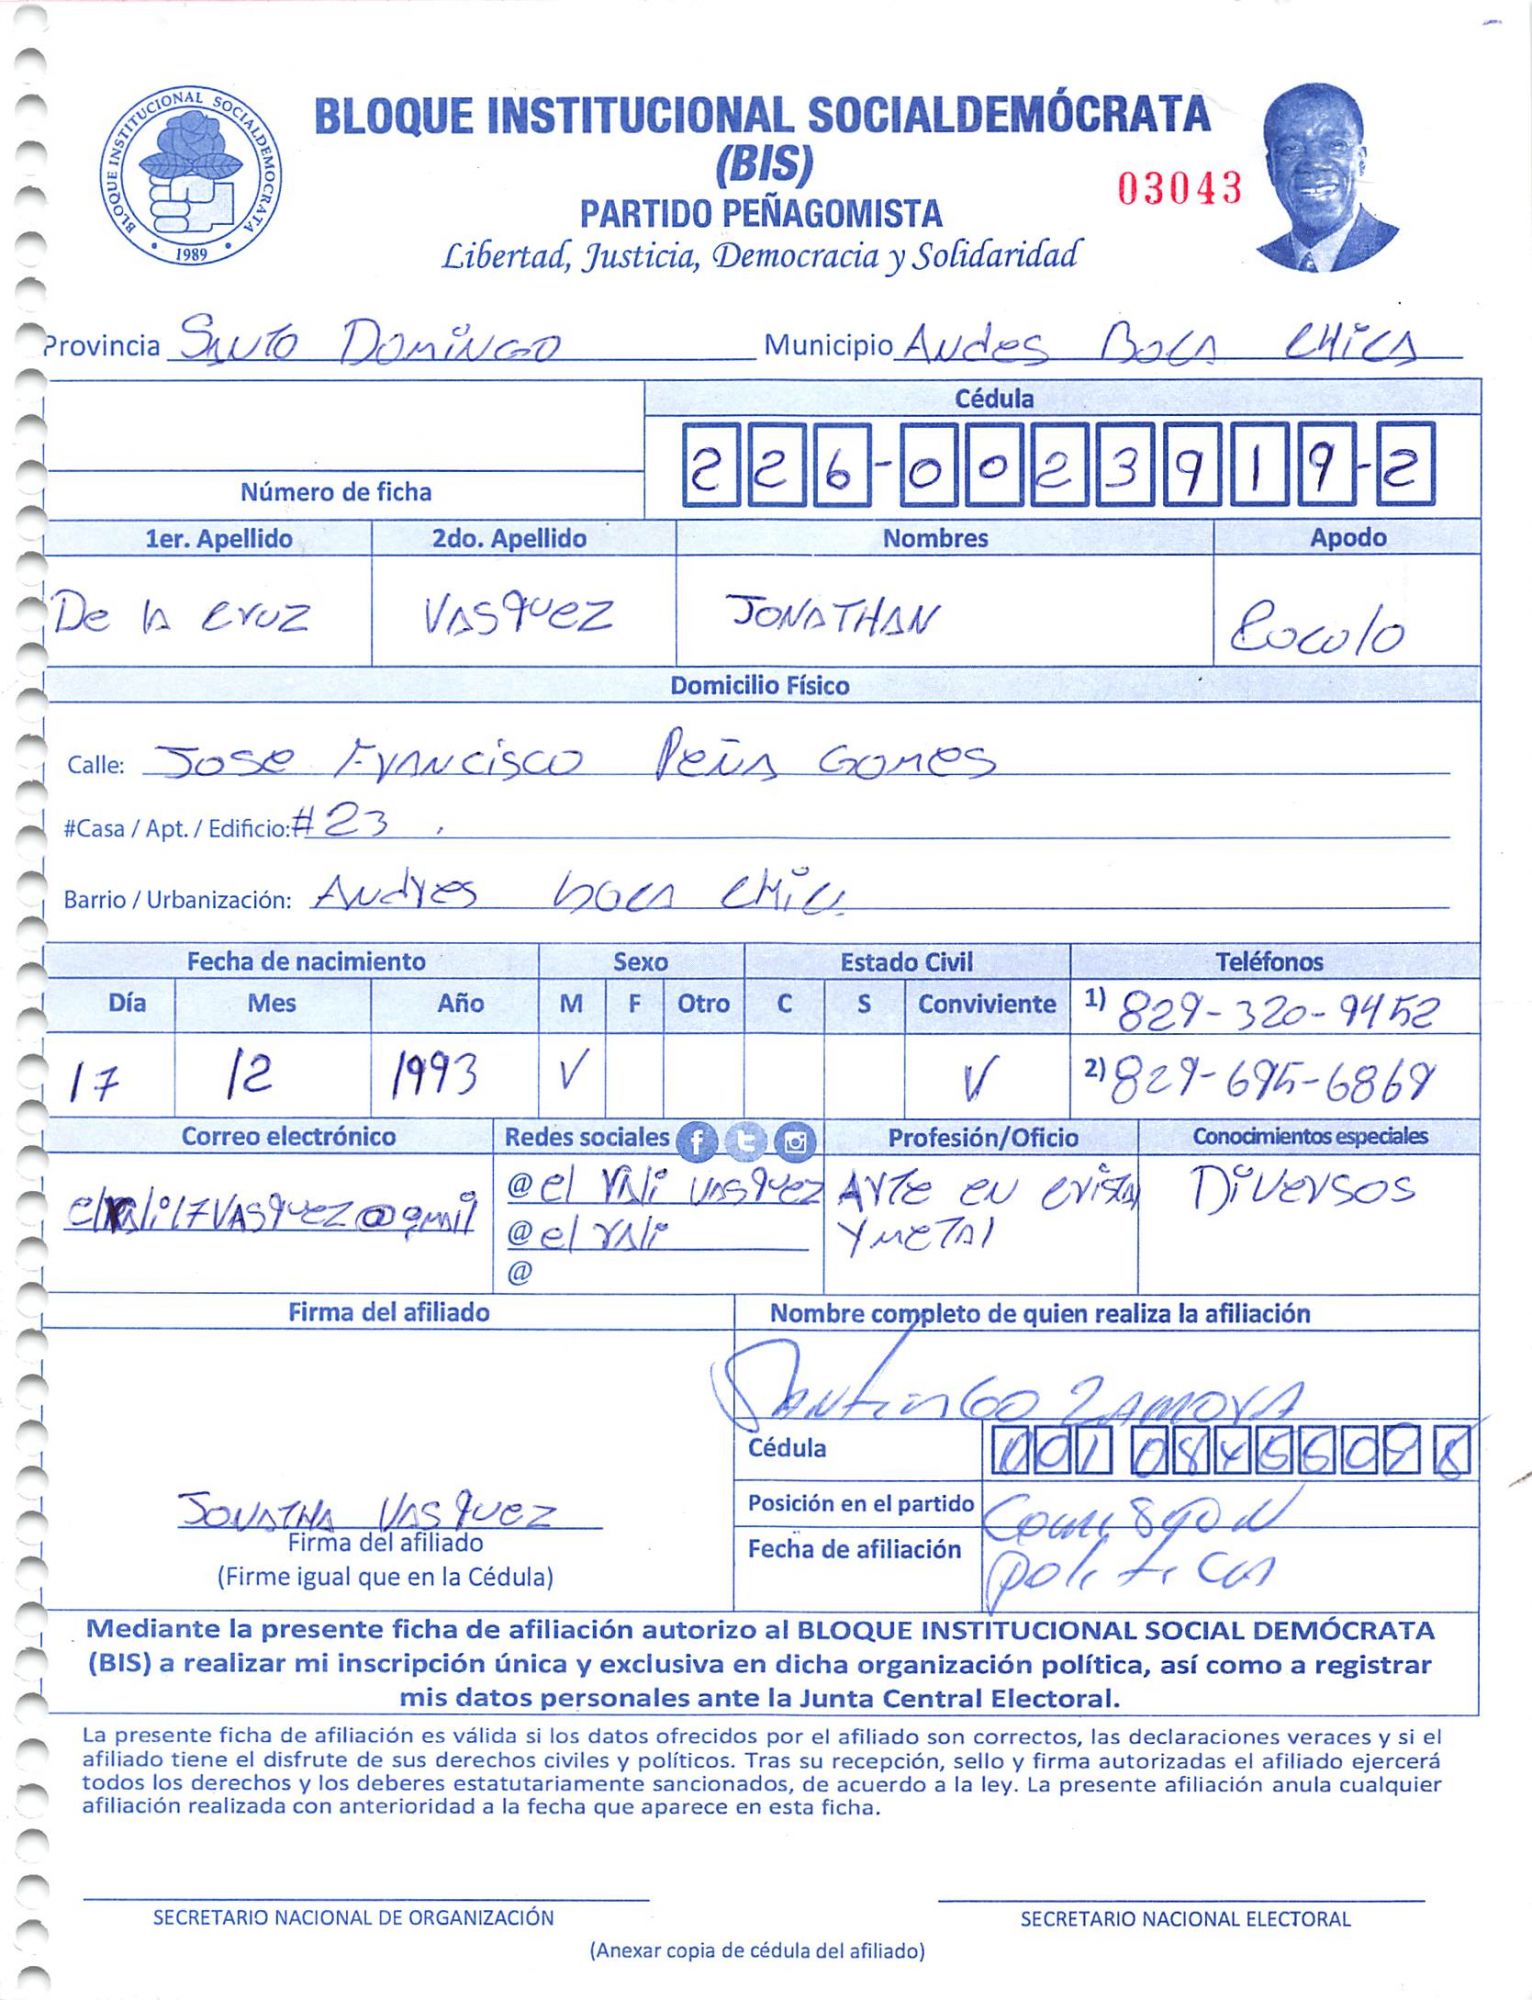 BLOQUE INSTITUCIONAL SOCIALDEMOCRATA
1989
BLOQUE INSTITUCIONAL SOCIALDEMÓCRATA
(BIS)
03043
PARTIDO PEÑAGOMISTA
Libertad, Justicia, Democracia y Solidaridad
Provincia Santo Domingo Municipio Andes Boca Chica
Cédula
226-0023919-2
Número de ficha
1er. Apellido 2do. Apellido Nombres Apodo
De la cruz Vasquez Jonathan Cocolo
Domicilio Físico
Calle: Jose Francisco Peña Gomes
#Casa / Apt. / Edificio: #23
Barrio / Urbanización: Andres boca chica
Fecha de nacimiento Sexo Estado Civil Teléfonos
Día Mes Año M F Otro C S Conviviente 1) 829-320-9452
17 12 1993 V V 2) 829-695-6869
Correo electrónico Redes sociales Profesión/Oficio Conocimientos especiales
@ el Yali vasquez Arte en cristal Diversos
17vasquez@gmail @ el Yali y metal
@
Firma del afiliado Nombre completo de quien realiza la afiliación
Santiago Zamora
Cédula 001 0845509 8
Jonatha Vasquez Posición en el partido Comision
Firma del afiliado Fecha de afiliación politica
(Firme igual que en la Cédula)
Mediante la presente ficha de afiliación autorizo al BLOQUE INSTITUCIONAL SOCIAL DEMÓCRATA
(BIS) a realizar mi inscripción única y exclusiva en dicha organización política, así como a registrar
mis datos personales ante la Junta Central Electoral.
La presente ficha de afiliación es válida si los datos ofrecidos por el afiliado son correctos, las declaraciones veraces y si el
afiliado tiene el disfrute de sus derechos civiles y políticos. Tras su recepción, sello y firma autorizadas el afiliado ejercerá
todos los derechos y los deberes estatutariamente sancionados, de acuerdo a la ley. La presente afiliación anula cualquier
afiliación realizada con anterioridad a la fecha que aparece en esta ficha.
SECRETARIO NACIONAL DE ORGANIZACIÓN SECRETARIO NACIONAL ELECTORAL
(Anexar copia de cédula del afiliado)